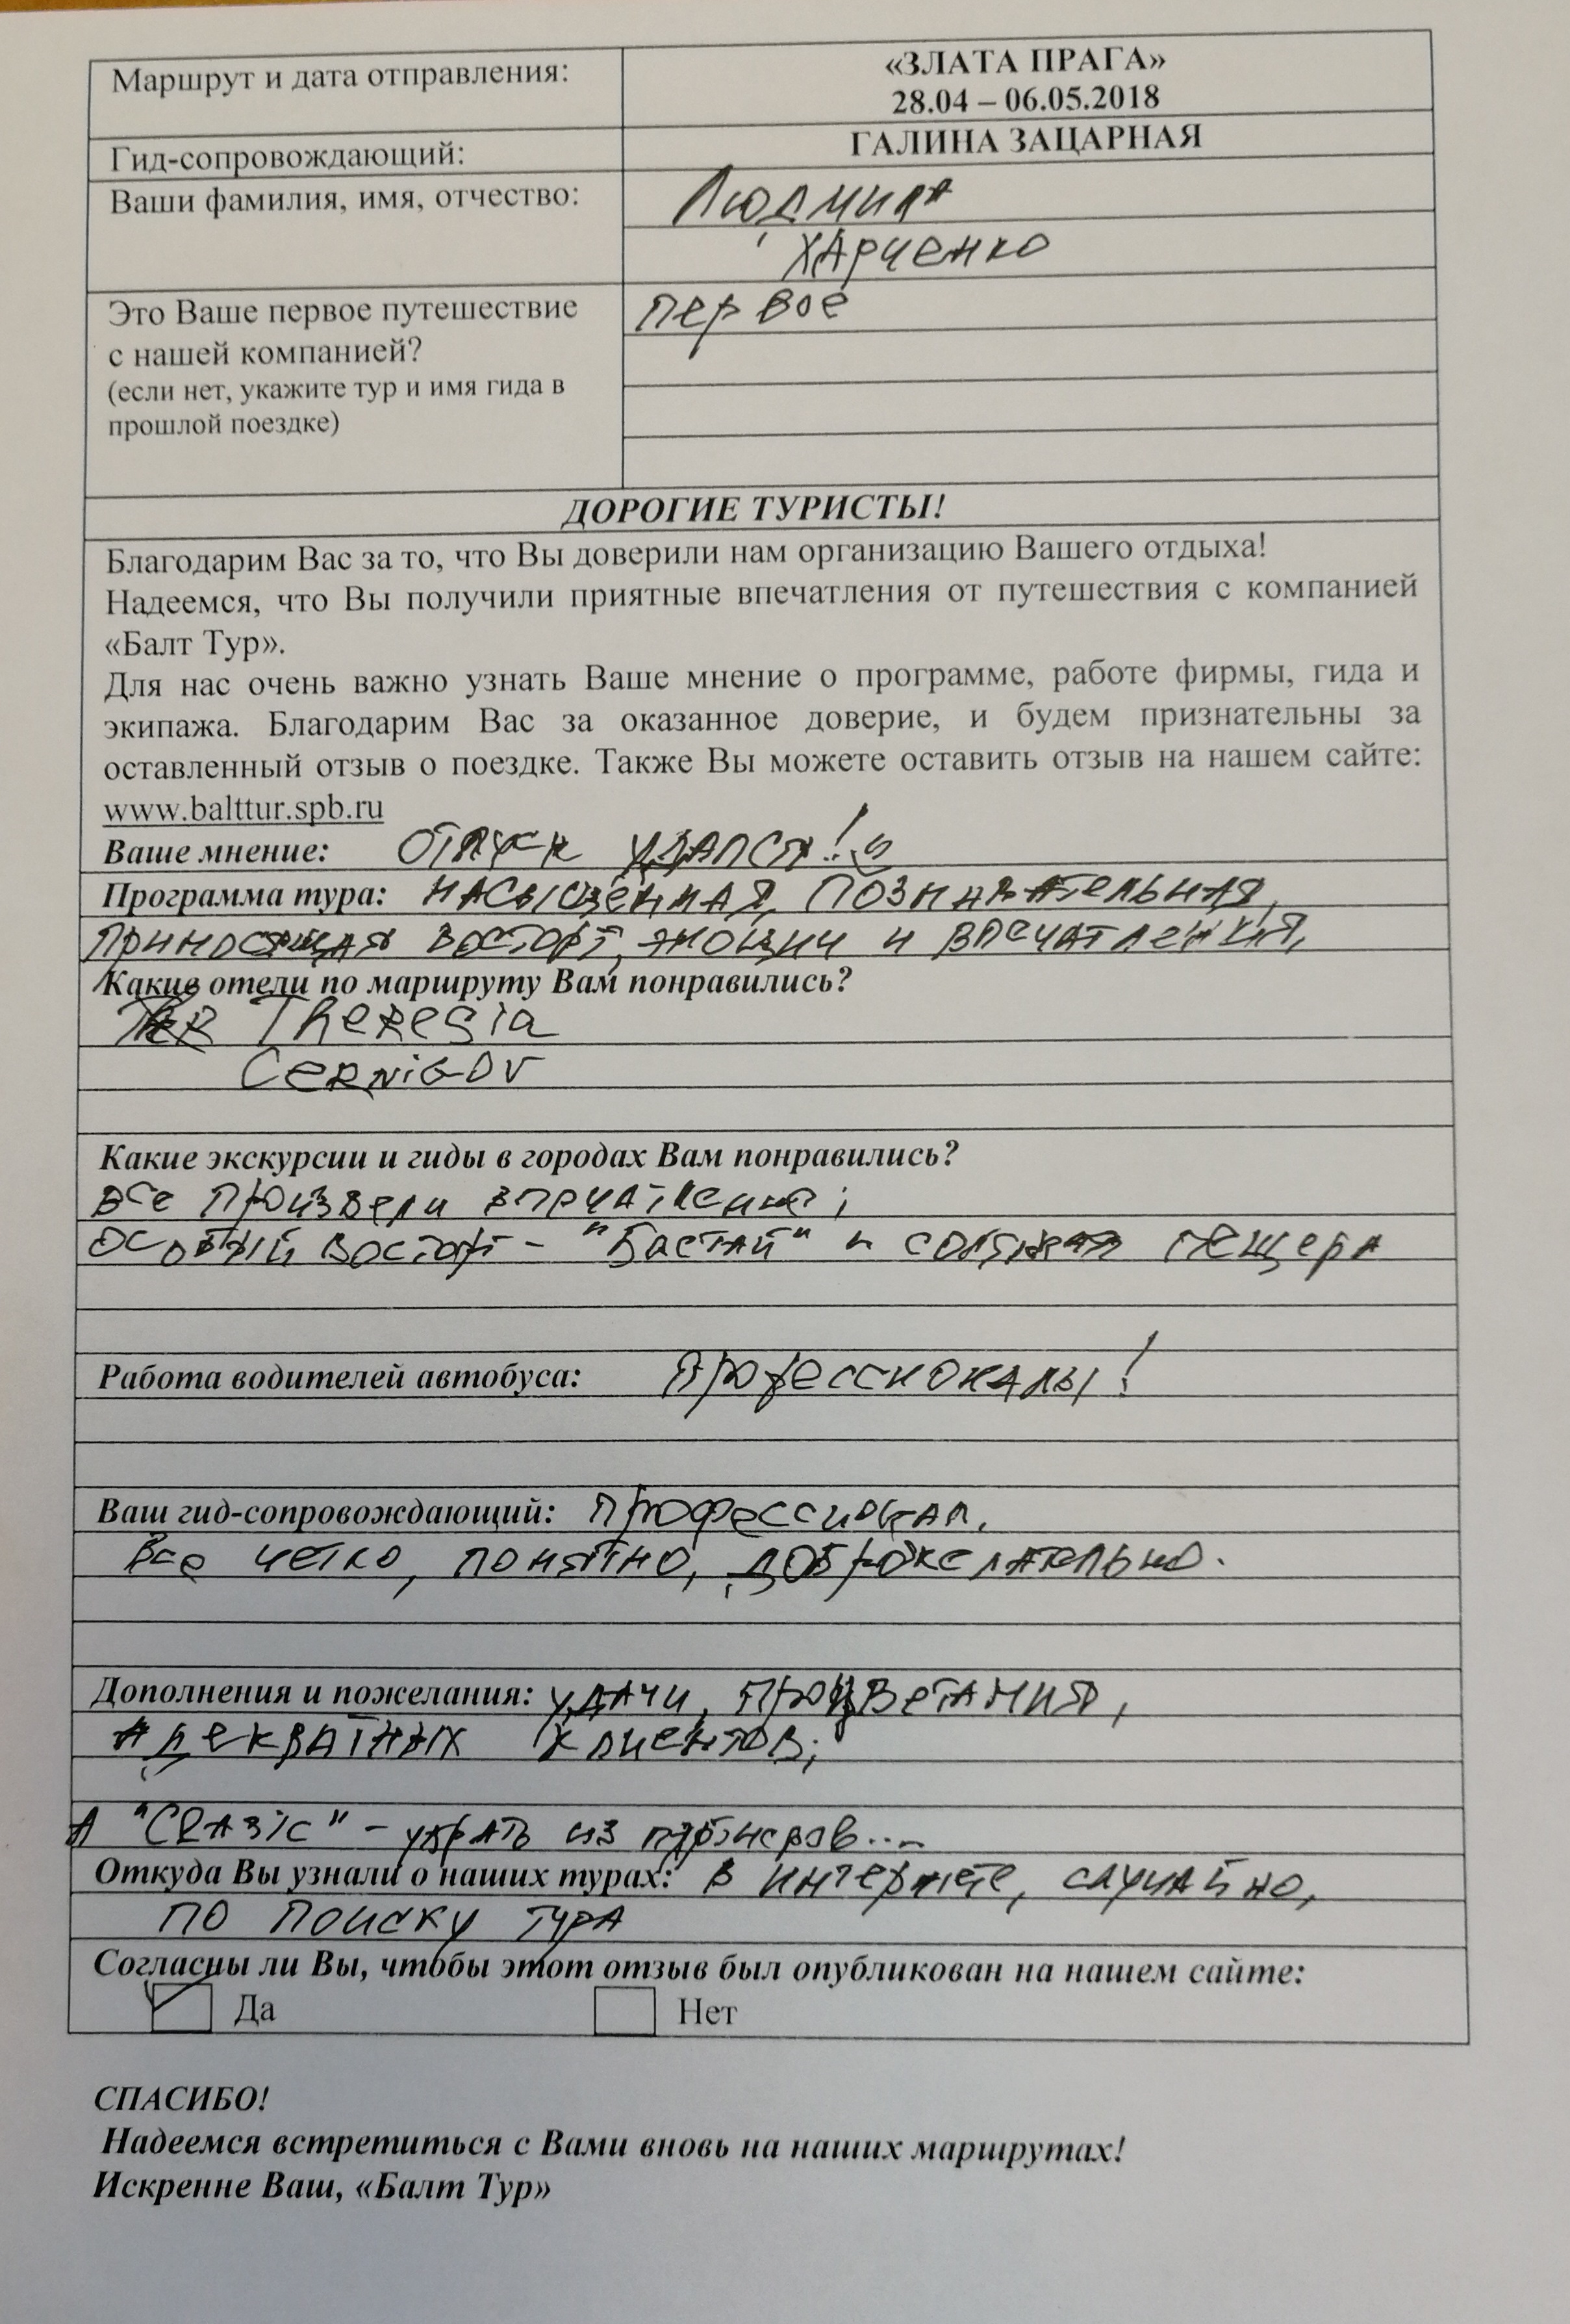 Маршрут и дата отправления:
«ЗЛАТА ПРАГА»
28.04 – 06.05.2018
Гид-сопровождающий:
ГАЛИНА ЗАЦАРНАЯ
Ваши фамилия, имя, отчество:
Людмила
Харченко
Это Ваше первое путешествие
с нашей компанией?
(если нет, укажите тур и имя гида в
прошлой поездке)
первое
ДОРОГИЕ ТУРИСТЫ!
Благодарим Вас за то, что Вы доверили нам организацию Вашего отдыха!
Надеемся, что Вы получили приятные впечатления от путешествия с компанией
«Балт Тур».
Для нас очень важно узнать Ваше мнение о программе, работе фирмы, гида и
экипажа. Благодарим Вас за оказанное доверие, и будем признательны за
оставленный отзыв о поездке. Также Вы можете оставить отзыв на нашем сайте:
www.balttur.spb.ru
Ваше мнение: отпуск удался!
Программа тура: насыщенная, познавательная,
приносящая восторг, эмоции и впечатления,
Какие отели по маршруту Вам понравились?
Theresia
Cernigov
Какие экскурсии и гиды в городах Вам понравились?
все произвели впечатление;
особый восторг - "Бастай" и соляная пещера
Работа водителей автобуса: Профессионалы!
Ваш гид-сопровождающий: профессионал.
Все четко, понятно, доброжелательно.
Дополнения и пожелания: удачи, процветания,
адекватных клиентов;
А "CRAзiс" - убрать из партнеров....
Откуда Вы узнали о наших турах: в интернете, случайно,
по поиску тура
Согласны ли Вы, чтобы этот отзыв был опубликован на нашем сайте:
Да Нет
СПАСИБО!
Надеемся встретиться с Вами вновь на наших маршрутах!
Искренне Ваш, «Балт Тур»